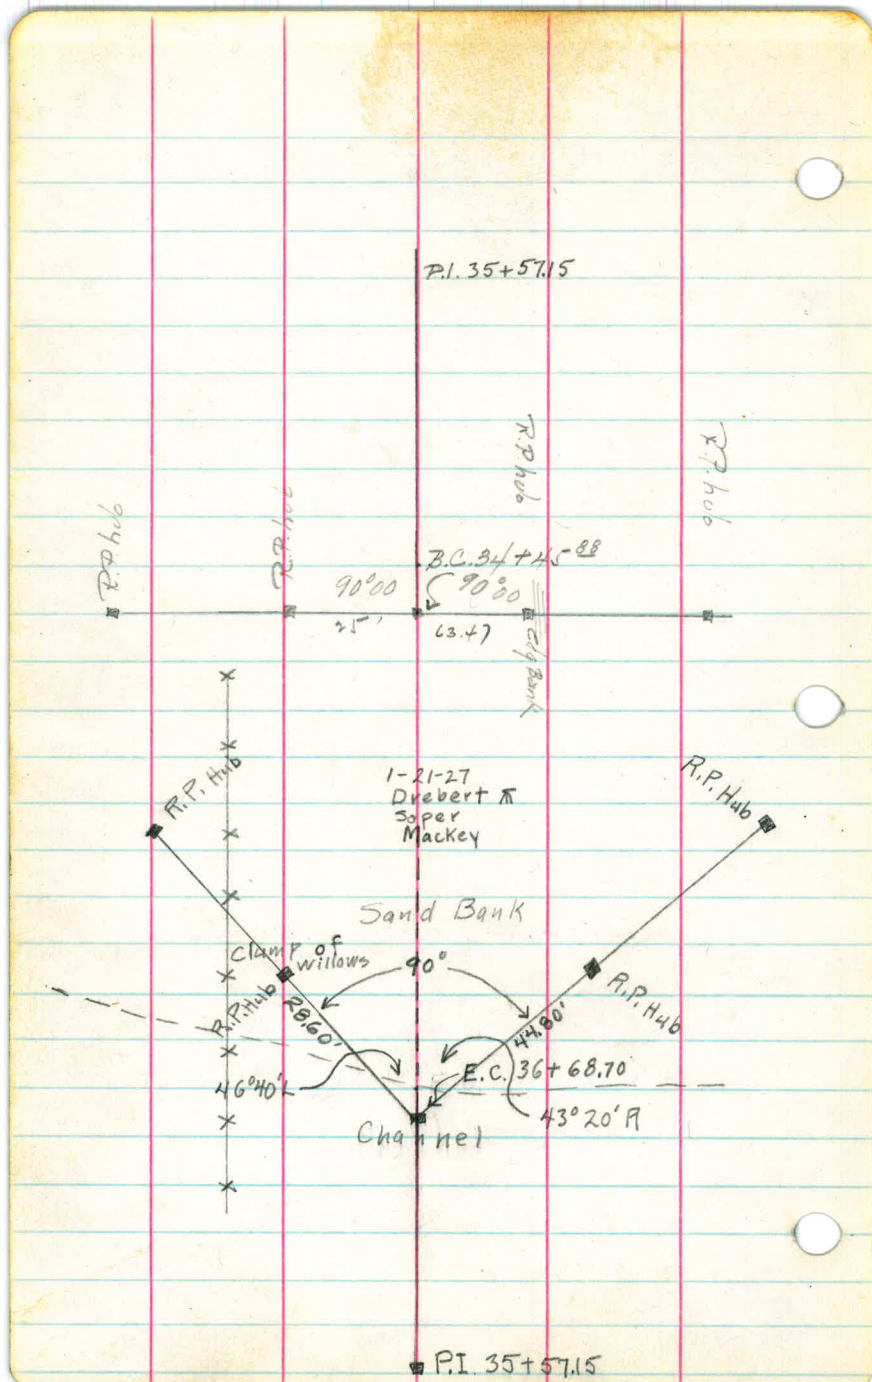 P.I. 35+57.15
R.P. hub
R.P. hub
R.P. hub
R.P. hub
B.C. 34+45 88
90°00
90°00
25'
63.47
Edg Bank
1-21-27
Drebert ⊼
Soper
Mackey
R.P. Hub
R.P. Hub
Sand Bank
Clump of
willows
90°
R.P. Hub
28.60'
44.80'
R.P. Hub
46°40'L
E.C. 36+68.70
43°20'R
Channel
P.I. 35+57.15